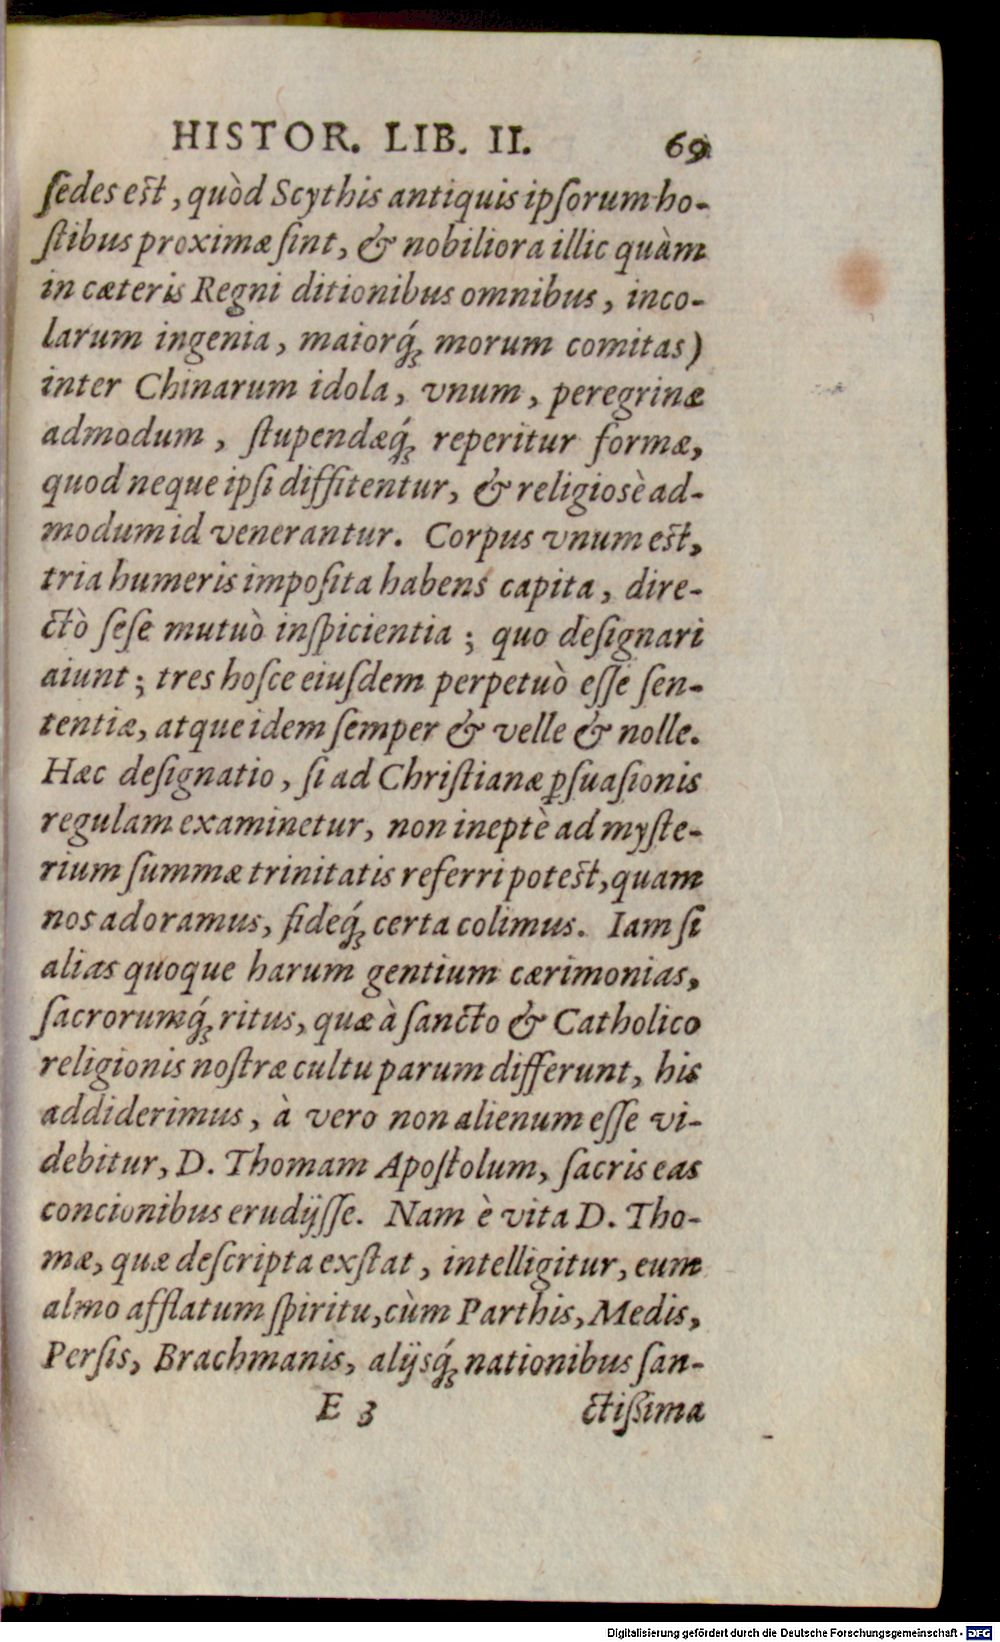 HISTOR. LIB. II. 69
ſedes est, quòd Scythis antiquis ipſorum ho-
ſtibus proximæ ſint, & nobiliora illic quàm
in cæteris Regni ditionibus omnibus, inco-
larum ingenia, maiorq́ꝫ morum comitas)
inter Chinarum idola, vnum, peregrinæ
admodum, ſtupendæq́ꝫ reperitur formæ,
quod neque ipſi diffitentur, & religiosè ad-
modum id venerantur. Corpus vnum est,
tria humeris impoſita habens capita, dire-
ctò ſeſe mutuò inſpicientia; quo deſignari
aiunt; tres hoſce eiuſdem perpetuò eſſe ſen-
tentiæ, atque idem ſemper & velle & nolle.
Hæc deſignatio, ſi ad Chriſtianæ ꝑſuaſionis
regulam examinetur, non ineptè ad myſte-
rium ſummæ trinitatis referri potest, quam
nos adoramus, fideq́ꝫ certa colimus. Iam ſi
alias quoque harum gentium cærimonias,
ſacrorumq́ꝫ ritus, quæ à ſancto & Catholico
religionis noſtræ cultu parum differunt, his
addiderimus, à vero non alienum eſſe vi-
debitur, D. Thomam Apoſtolum, ſacris eas
concionibus erudijſſe. Nam è vita D. Tho-
mæ, quæ deſcripta exſtat, intelligitur, eum
almo afflatum ſpiritu, cùm Parthis, Medis,
Perſis, Brachmanis, alijsq́ꝫ nationibus ſan-
E 3 ctißima
Digitalisierung gefördert durch die Deutsche Forschungsgemeinschaft - DFG